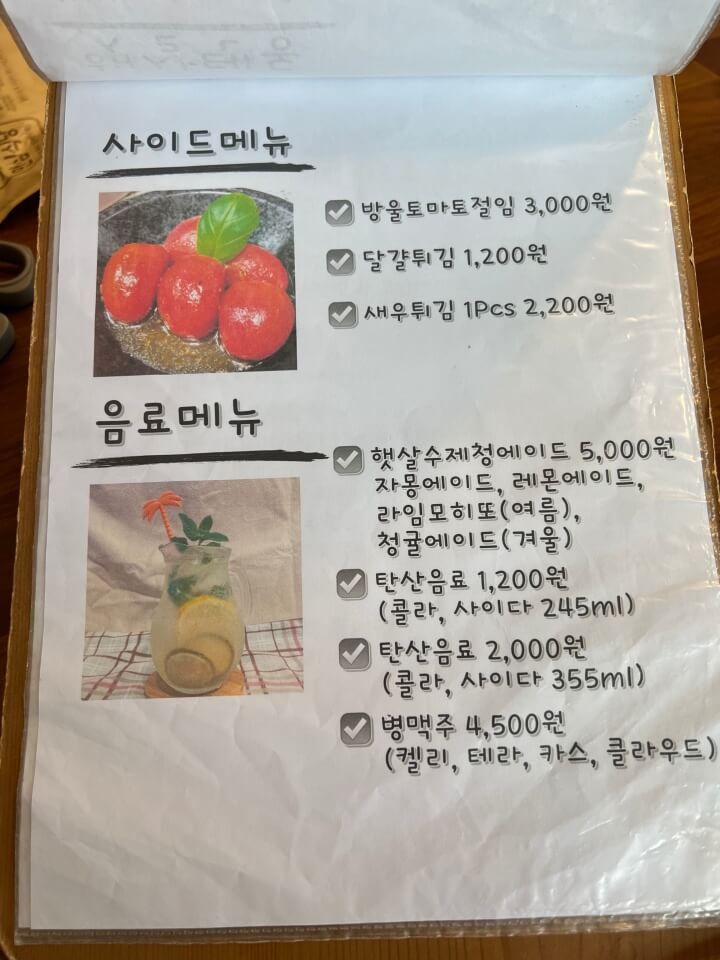 사이드메뉴
방울토마토절임 3,000원
달걀튀김 1,200원
새우튀김 1Pcs 2,200원
음료메뉴
햇살수제청에이드 5,000원
자몽에이드, 레몬에이드,
라임모히또(여름),
청귤에이드(겨울)
탄산음료 1,200원
(콜라, 사이다 245ml)
탄산음료 2,000원
(콜라, 사이다 355ml)
병맥주 4,500원
(켈리, 테라, 카스, 클라우드)